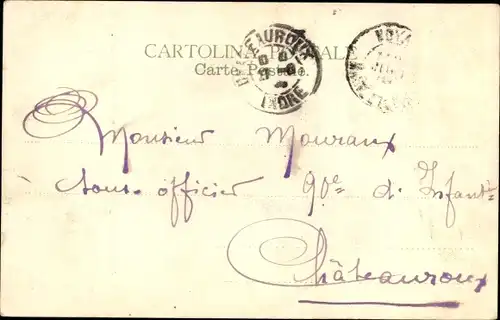 CARTOLINA POSTALE
Carte Postale.
CHATEAUROUX
INDRE
Monsieur Mouraux
Sous-officier 90e d'Infant
Châteauroux